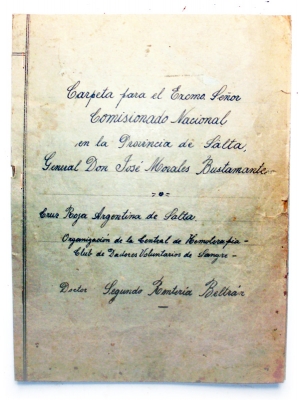 Carpeta para el Excmo. Señor
Comisionado Nacional
en la Provincia de Salta,
General Don José Morales Bustamante-
Cruz Roja Argentina de Salta.
Organización de la Central de Hemoterapia -
Club de Dadores Voluntarios de Sangre -
Doctor Segundo Rentería Beltrán